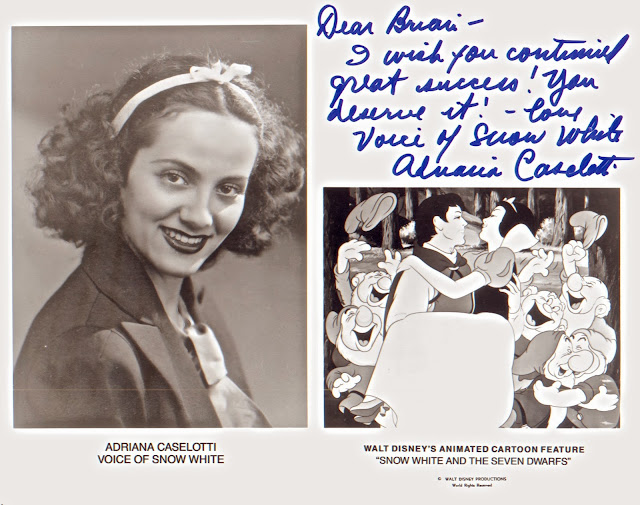 Dear Brian –
I wish you continued
great success! You
deserve it! – Love
Voice of Snow White
Adriana Caselotti
ADRIANA CASELOTTI
VOICE OF SNOW WHITE
WALT DISNEY'S ANIMATED CARTOON FEATURE
"SNOW WHITE AND THE SEVEN DWARFS"
© WALT DISNEY PRODUCTIONS
World Rights Reserved